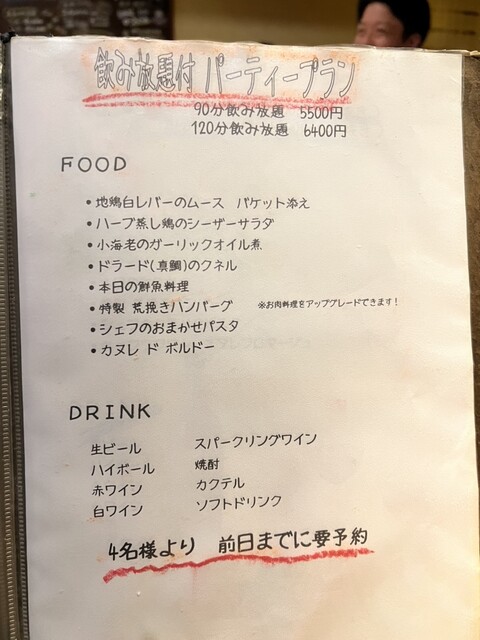 飲み放題付 パーティープラン
90分飲み放題 5500円
120分飲み放題 6400円
FOOD
・地鶏白レバーのムース バケット添え
・ハーブ蒸し鶏のシーザーサラダ
・小海老のガーリックオイル煮
・ドラード(真鯛)のクネル
・本日の鮮魚料理
・特製 荒挽きハンバーグ ※お肉料理をアップグレードできます!
・シェフのおまかせパスタ
・カヌレ ド ボルドー
DRINK
生ビール スパークリングワイン
ハイボール 焼酎
赤ワイン カクテル
白ワイン ソフトドリンク
4名様より 前日までに要予約